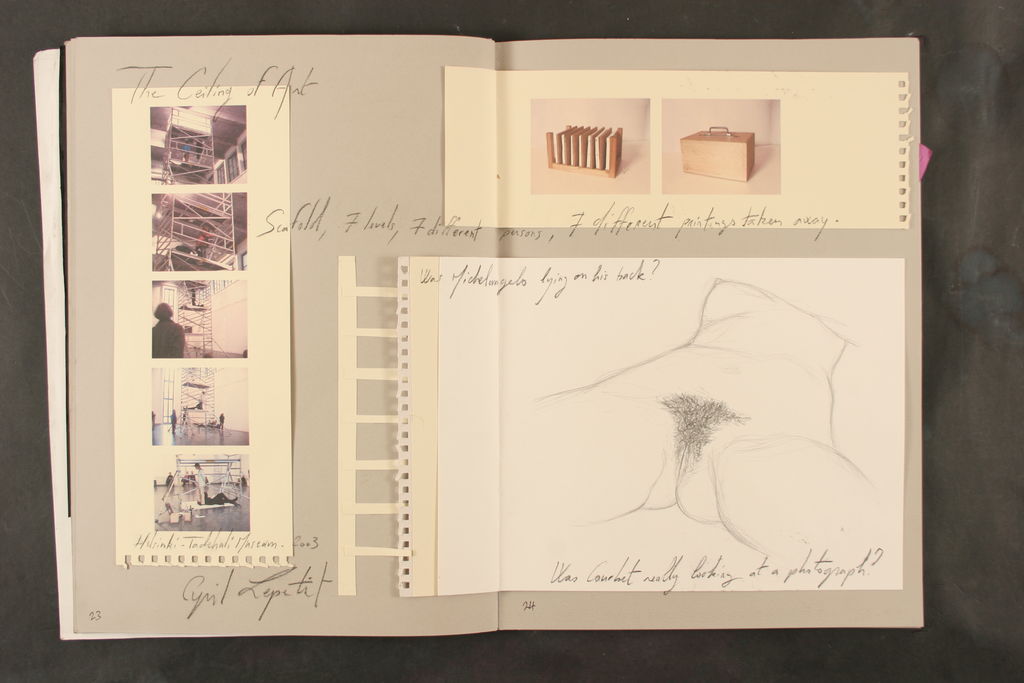 The Ceiling of Art
Scafold, 7 levels, 7 different persons, 7 different paintings taken away.
Was Michelangelo lying on his back?
Was Courbet really looking at a photograph?
Helsinki - Taidehali Museum. 2003
Cyril Lepetit
23
24